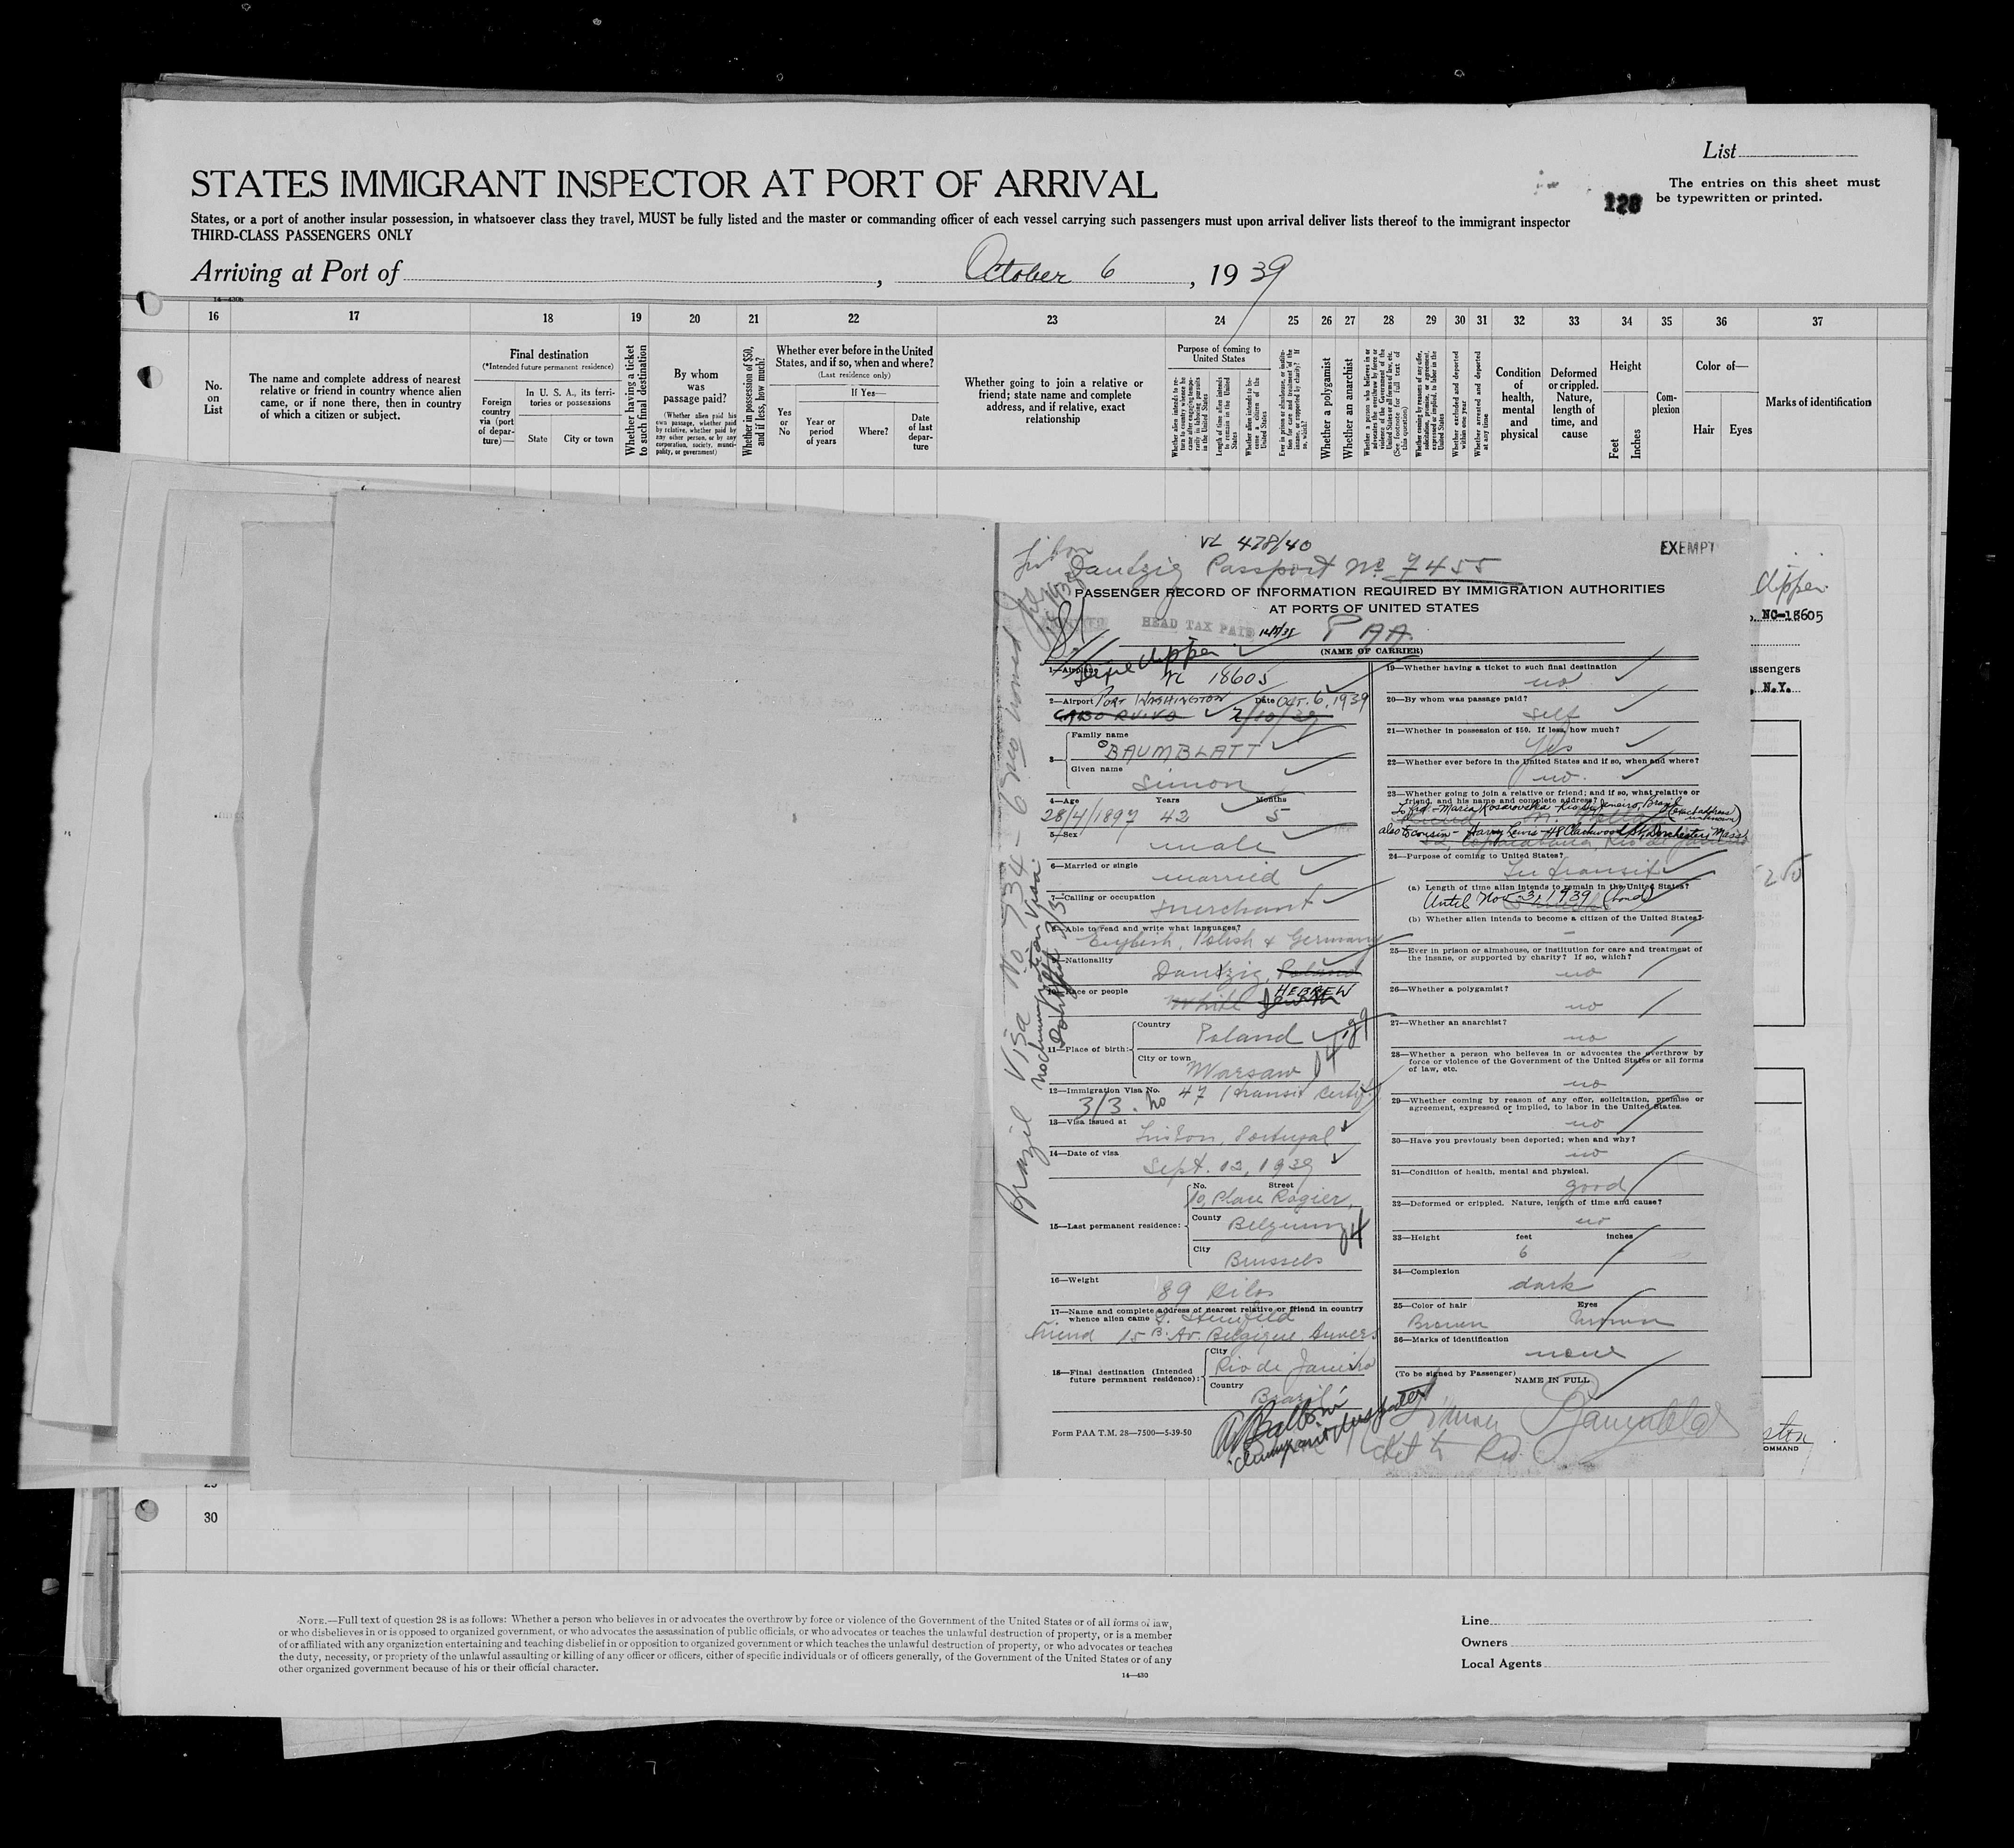 List
STATES IMMIGRANT INSPECTOR AT PORT OF ARRIVAL
The entries on this sheet must
be typewritten or printed.
128
States, or a port of another insular possession, in whatsoever class they travel, MUST be fully listed and the master or commanding officer of each vessel carrying such passengers must upon arrival deliver lists thereof to the immigrant inspector
THIRD-CLASS PASSENGERS ONLY
Arriving at Port of , October 6 , 1939
14—430b
16 17 18 19 20 21 22 23 24 25 26 27 28 29 30 31 32 33 34 35 36 37
No. on List
The name and complete address of nearest relative or friend in country whence alien came, or if none there, then in country of which a citizen or subject.
Final destination
(*Intended future permanent residence)
Foreign country via (port of departure)—
In U. S. A., its territories or possessions
State
City or town
Whether having a ticket to such final destination
By whom was passage paid?
(Whether alien paid his own passage, whether paid by relative, whether paid by any other person, or by any corporation, society, municipality, or government)
Whether in possession of $50, and if less, how much?
Whether ever before in the United States, and if so, when and where?
(Last residence only)
Yes or No
If Yes—
Year or period of years
Where?
Date of last departure
Whether going to join a relative or friend; state name and complete address, and if relative, exact relationship
Purpose of coming to United States
Whether alien intends to return to country whence he came after engaging temporarily in laboring pursuits in the United States
Length of time alien intends to remain in the United States
Whether alien intends to become a citizen of the United States
Ever in prison or almshouse, or institution for care and treatment of the insane, or supported by charity? If so, which?
Whether a polygamist
Whether an anarchist
Whether a person who believes in or advocates the overthrow by force or violence of the Government of the United States or all forms of law, etc. (See footnote for full text of this question)
Whether coming by reason of any offer, solicitation, promise, or agreement, expressed or implied, to labor in the United States
Whether excluded and deported within one year
Whether arrested and deported at any time
Condition of health, mental and physical
Deformed or crippled. Nature, length of time, and cause
Height
Feet
Inches
Complexion
Color of—
Hair
Eyes
Marks of identification
VL 428/40
EXEMPT
Dantzig Passport No 7455
PASSENGER RECORD OF INFORMATION REQUIRED BY IMMIGRATION AUTHORITIES
AT PORTS OF UNITED STATES
HEAD TAX PAID
PAA
(NAME OF CARRIER)
1—Airplane Clipper NC 18605
2—Airport PORT WASHINGTON Date OCT. 6, 1939
CABO RUIVO 2/10/39
3— Family name BAUMBLATT
Given name Simon
4—Age Years Months
28/4/1897 42 5
5—Sex male
6—Married or single married
7—Calling or occupation merchant
8—Able to read and write what languages?
English, Polish & Germany
9—Nationality Dantzig, Poland
10—Race or people White HEBREW
11—Place of birth: Country Poland
City or town Warsaw
12—Immigration Visa No. 47 (transit Certif.)
3/3. No
13—Visa issued at Lisbon, Portugal
14—Date of visa Sept. 12, 1939
15—Last permanent residence: No. Street 10, Place Rogier,
County Belgium
City Brussels
16—Weight 89 Kilos
17—Name and complete address of nearest relative or friend in country whence alien came
friend 15 B. Av. Belgique, Anvers
18—Final destination (Intended future permanent residence): City Rio de Janeiro
Country Brazil
Form PAA T.M. 28—7500—5-39-50
19—Whether having a ticket to such final destination
no
20—By whom was passage paid?
Self
21—Whether in possession of $50. If less, how much?
Yes
22—Whether ever before in the United States and if so, when and where?
no.
23—Whether going to join a relative or friend; and if so, what relative or friend, and his name and complete address?
To frd.- Maria Rosarovska - Rio De Janeiro, Brazil (exact address unknown)
also to cousin - Harry Lewis - 48 Clarkwood St, Dorchester, Mass.
24—Purpose of coming to United States?
In transit
(a) Length of time alien intends to remain in the United States?
Until Nov. 3, 1939 (bond)
(b) Whether alien intends to become a citizen of the United States?
25—Ever in prison or almshouse, or institution for care and treatment of the insane, or supported by charity? If so, which?
no
26—Whether a polygamist?
no
27—Whether an anarchist?
no
28—Whether a person who believes in or advocates the overthrow by force or violence of the Government of the United States or all forms of law, etc.
no
29—Whether coming by reason of any offer, solicitation, promise or agreement, expressed or implied, to labor in the United States.
no
30—Have you previously been deported; when and why?
no
31—Condition of health, mental and physical.
good
32—Deformed or crippled. Nature, length of time and cause?
no
33—Height feet inches
6
34—Complexion
dark
35—Color of hair Eyes
Brown brown
36—Marks of identification
none
(To be signed by Passenger)
NAME IN FULL
Simon
Brazil Visa No 734 - 6
Clipper
NC-18605
ssengers
N.Y.
250
OMMAND
30
NOTE.—Full text of question 28 is as follows: Whether a person who believes in or advocates the overthrow by force or violence of the Government of the United States or of all forms of law,
or who disbelieves in or is opposed to organized government, or who advocates the assassination of public officials, or who advocates or teaches the unlawful destruction of property, or is a member
of or affiliated with any organization entertaining and teaching disbelief in or opposition to organized government or which teaches the unlawful destruction of property, or who advocates or teaches
the duty, necessity, or propriety of the unlawful assaulting or killing of any officer or officers, either of specific individuals or of officers generally, of the Government of the United States or of any
other organized government because of his or their official character.
14—430
Line
Owners
Local Agents